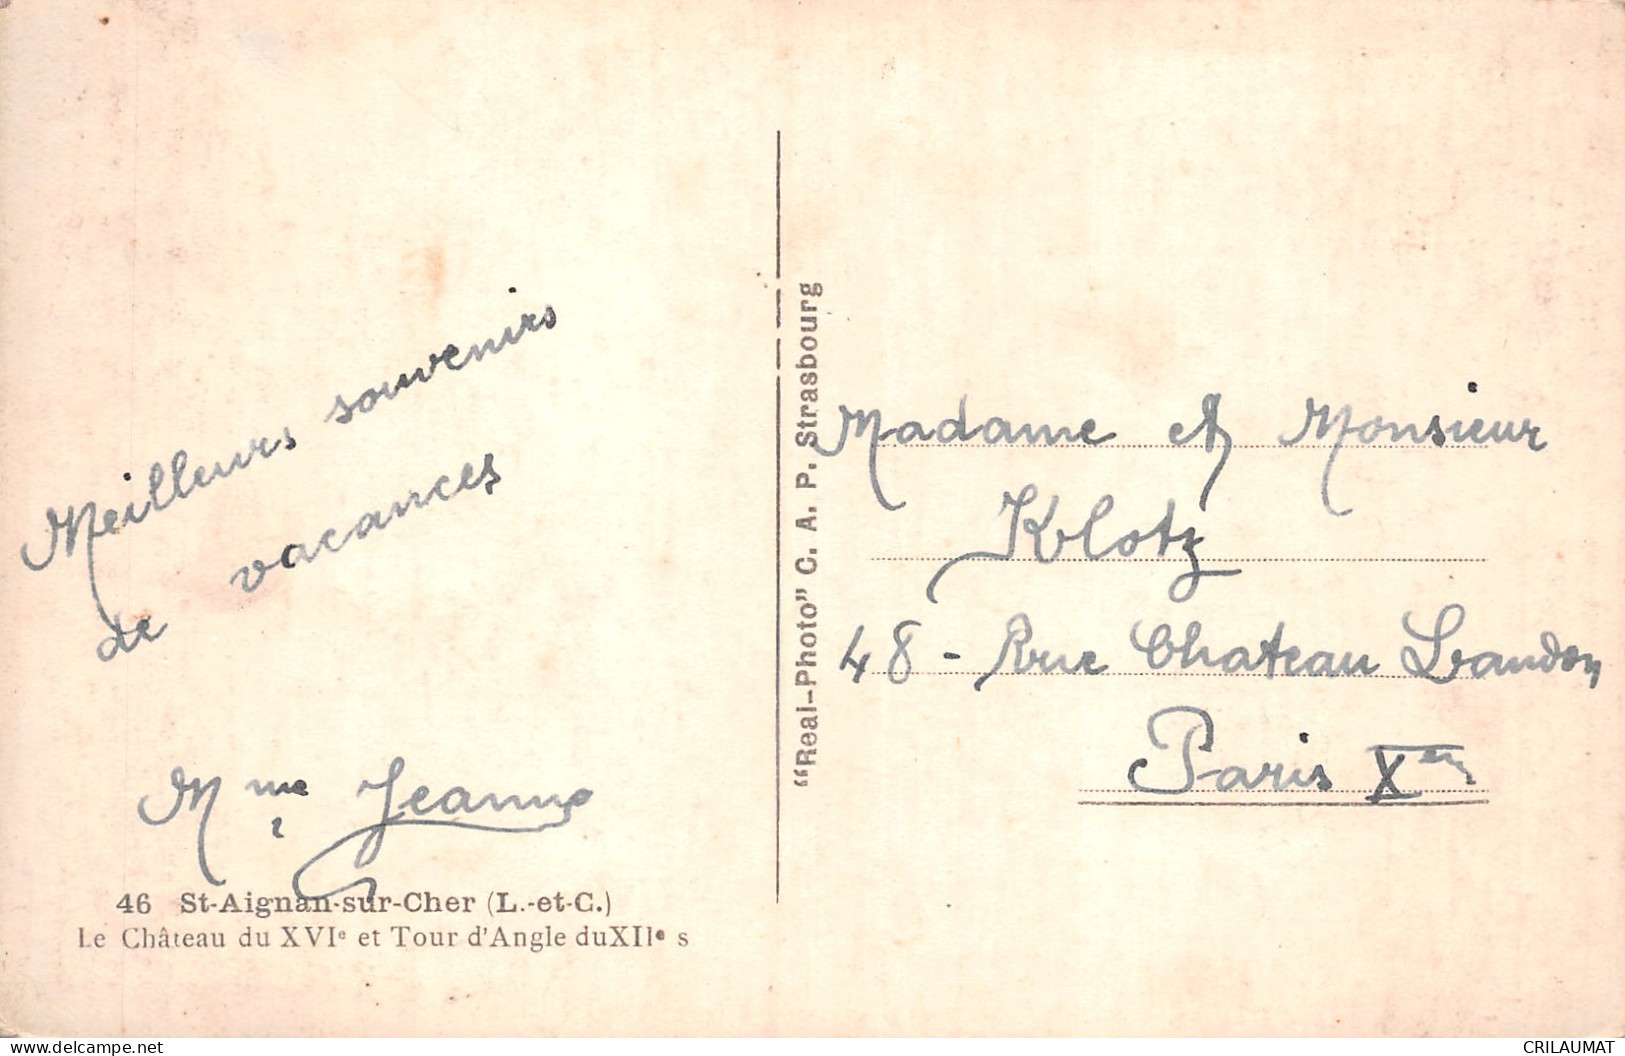 Meilleurs souvenirs
de vacances
Mme Jeanne
46 St-Aignan-sur-Cher (L.-et-C.)
Le Château du XVIe et Tour d'Angle du XIIe s
"Real-Photo" C. A. P. Strasbourg
Madame et Monsieur
Klotz
48 - Rue Chateau Landon
Paris Xem
www.delcampe.net
CRILAUMAT